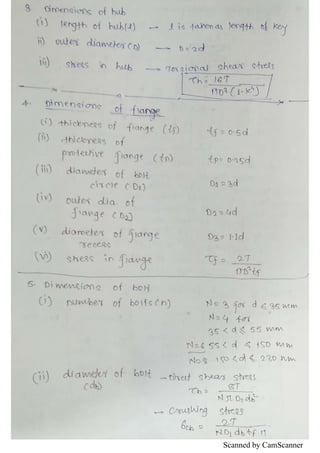 3. Dimensions of hub
(i) length of hub(l) → l is taken as length of key
ii) outer diameter (D) → D=2d
iii) stress in hub → Torsional shear stress
Th = 16T / πD³(1-K⁴)
4. Dimensions of flange
(i) thickness of flange (tf) tf = 0.5d
(ii) thickness of
protective flange (tp) tp = 0.25d
(iii) diameter of bolt
circle (D1) D1 = 3d
(iv) outer dia. of
flange (D2) D2 = 4d
(v) diameter of flange
recess D3 = 1.1d
(vi) stress in flange Tf = 2T / πD²tf
5. Dimensions of bolt
(i) number of bolts (n) N=3 for d ≤ 35 mm
N=4 for
35 < d ≤ 55 mm
N=6 55 < d ≤ 150 mm
N=8 150 < d ≤ 230 mm
(ii) diameter of bolt → direct shear stress
(db) Tb = 8T / N.π.D1 db²
→ Crushing stress
6cb = 2T / N D1 db tf
Scanned by CamScanner